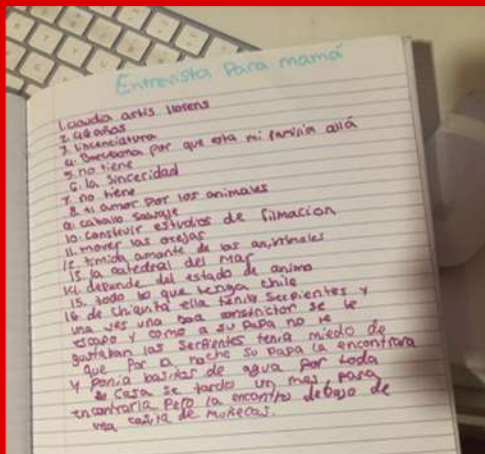 Entrevista Para mamá
1. claudia artis llorens
2. 46 años
3. Lincenciatura
4. Barcelona por que esta mi familia allá
5. no tiene
6. la sinceridad
7. no tiene
8. el amor por los animales
9. caballo salvaje
10. construir estudios de filmacion
11. mover las orejas
12. timida amante de los animales
13. la catedral del mar
14. depende del estado de animo
15. todo lo que tenga chile
16. de chiquita ella tenia serpientes y
una ves una boa constrictor se le
escapo y como a su papa no le
gustaban las serpientes tenia miedo de
que por la noche su papa la encontrara
y ponia basitos de agua por toda
casa se tardo un mes para
encontrarla pero la encontro debajo de
una casita de muñecas.